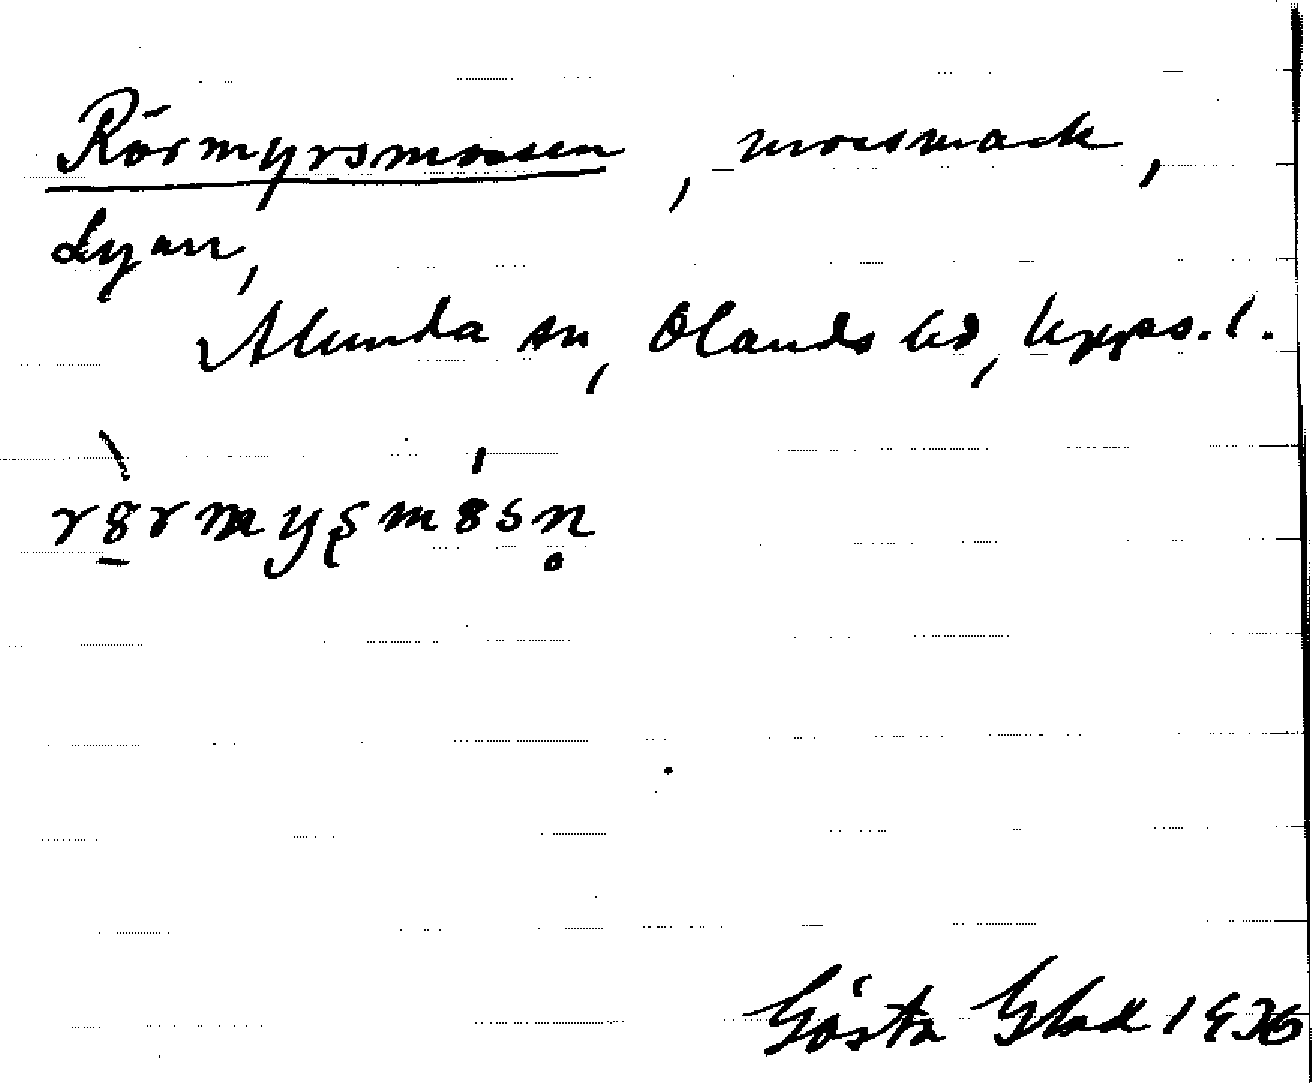 Rörmyrsmossen, mossmack,
Lyan,
Alunda sn, Olands hd, Upps. l.
Gösta Glad 1936